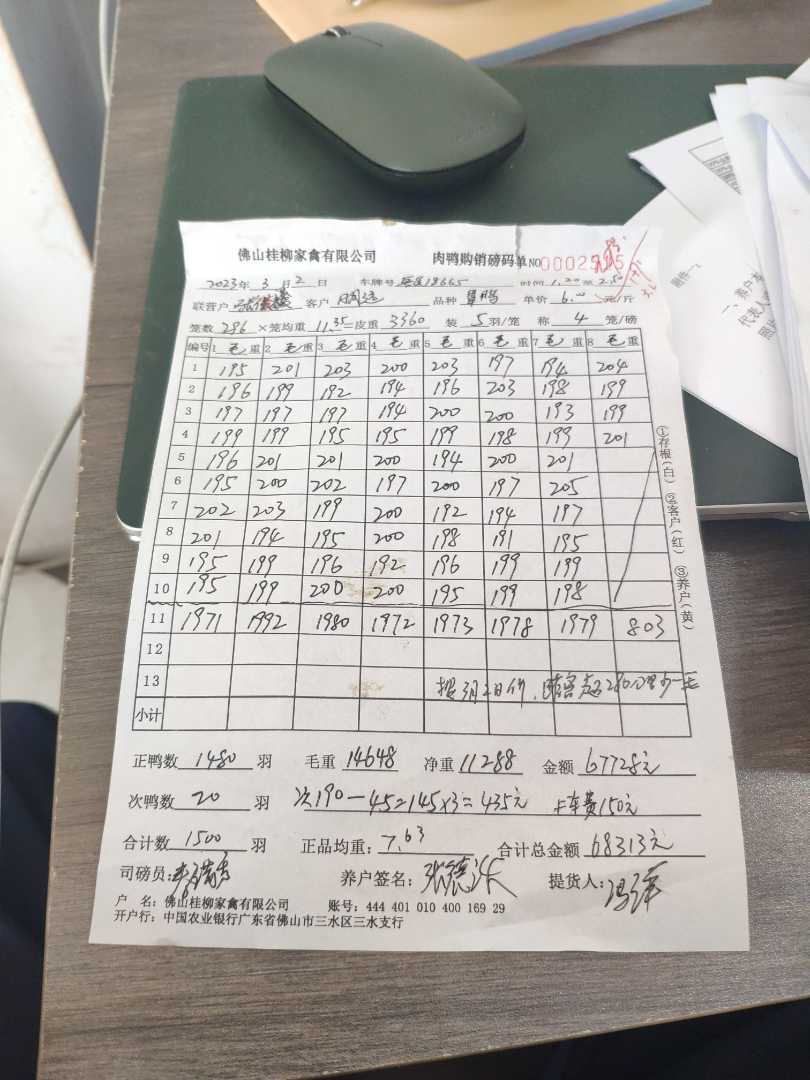 佛山桂柳家禽有限公司 肉鸭购销磅码单NO 00029
2023年 3月 2日 车牌号 18665 时间 1.20 至 2.50
联营户 客户 品种 单价 6.00 元/斤
笼数 296 ×笼均重 11.35 =皮重 3360 装 5 羽/笼 称 4 笼/磅
编号 1 毛重 2 毛重 3 毛重 4 毛重 5 毛重 6 毛重 7 毛重 8 毛重
1 195 201 203 200 203 197 194 204
2 196 199 192 194 196 203 198 199
3 197 197 197 194 200 200 193 199
4 199 199 195 195 199 198 199 201
5 196 201 201 200 194 200 201
6 195 200 202 197 200 197 205
7 202 203 199 200 192 194 197
8 201 194 195 200 198 191 195
9 195 199 196 192 196 199 199
10 195 199 200 200 195 199 198
11 1971 1992 1980 1972 1973 1978 1979 803
12
13 报3月2日价
小计
①存根(白) ②客户(红) ③养户(黄)
正鸭数 1480 羽 毛重 14648 净重 11288 金额 67728元
次鸭数 20 羽 次190-45=145×3=435元 卡车费150元
合计数 1500 羽 正品均重: 7.63 合计总金额 68313元
司磅员: 养户签名: 提货人:
户 名: 佛山桂柳家禽有限公司 账号: 444 401 010 400 169 29
开户行: 中国农业银行广东省佛山市三水区三水支行